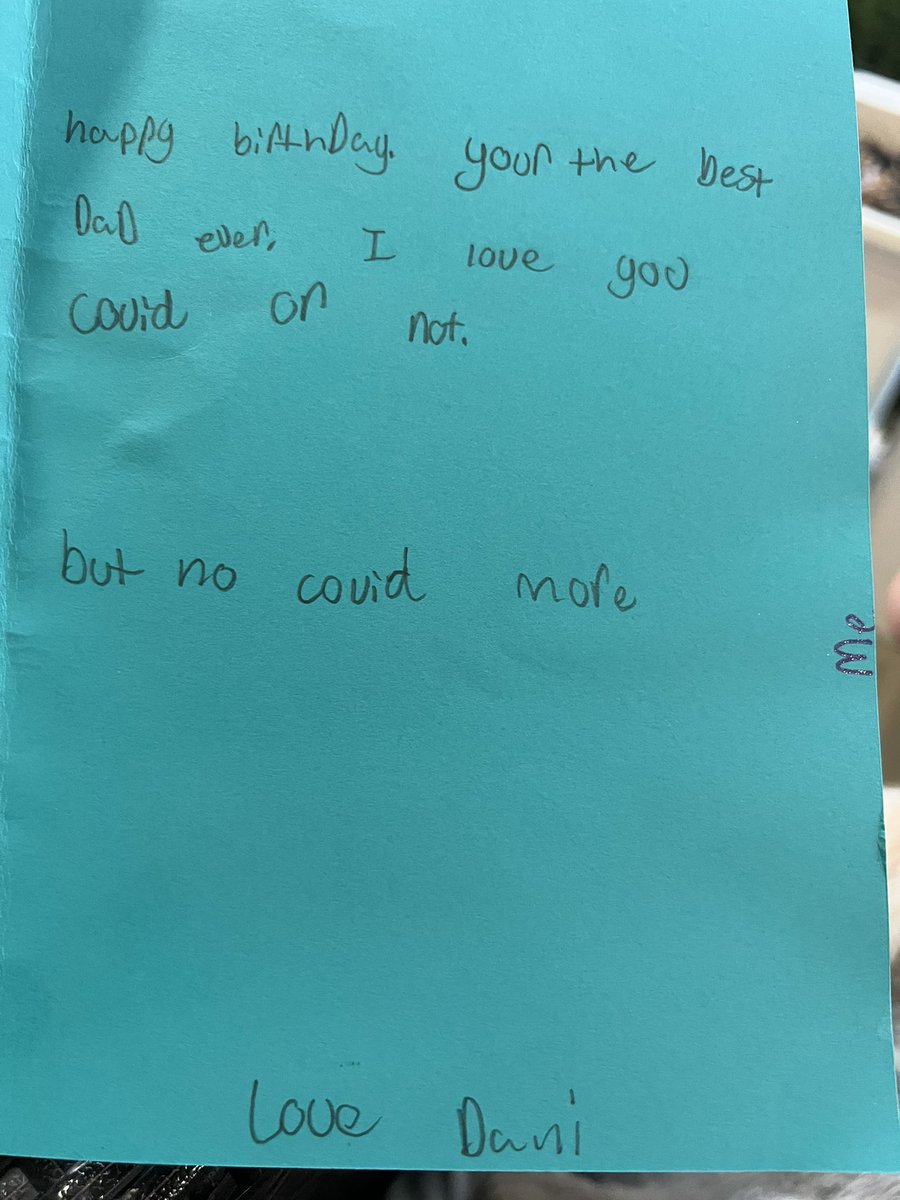 happy birthDay. your the best
DaD ever. I love you
covid or not.
but no covid more
me
Love Dani